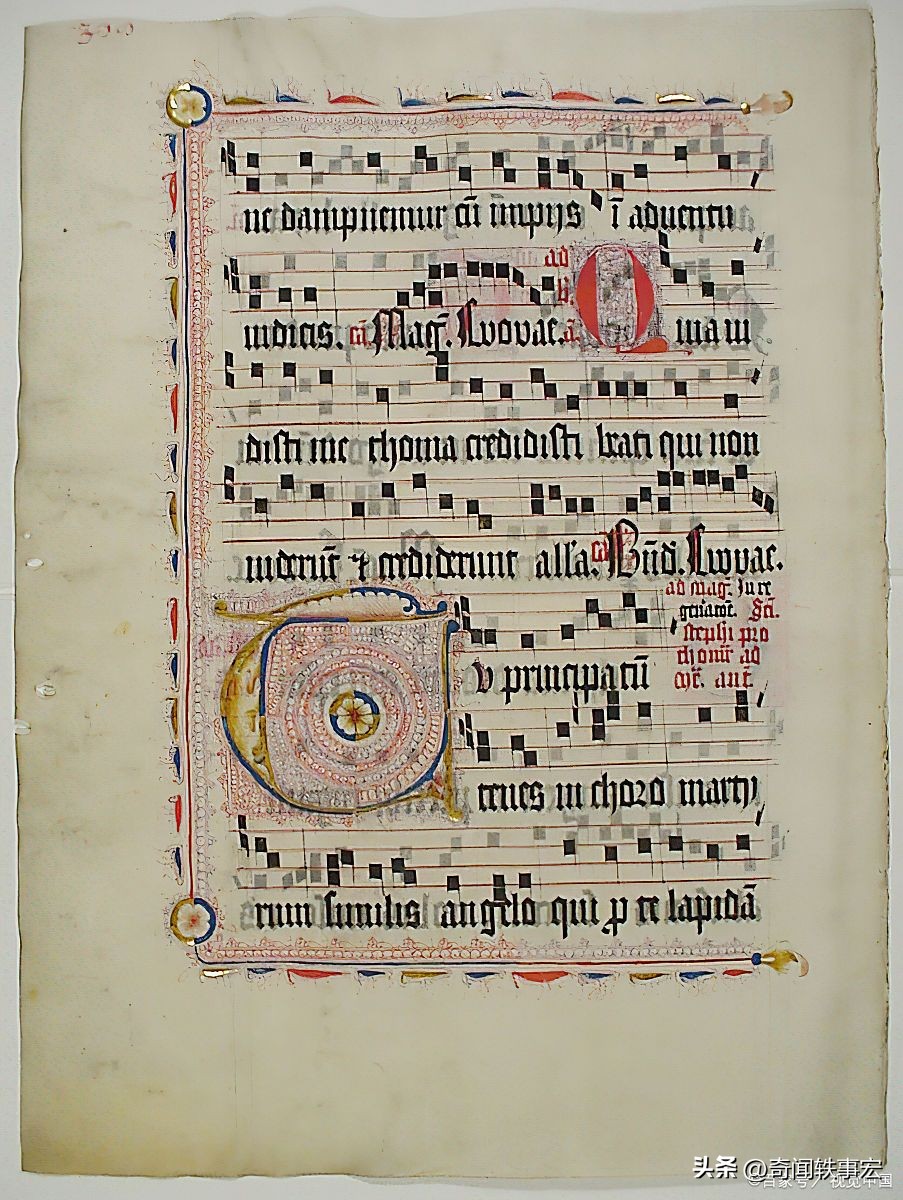 300
ne dampnemur cū īmpijs ī aduentu
iudicis. ca Mag. Evovae. ad B. a Quia ui
disti me thoma credidisti beati qui non
uiderūt & crediderunt alla. ca Būd. Evovae.
ad mag. In re
generacōe. Scī.
stephi pro
thomr ad
vr. ant
Tu principatū
tenes in choro marty
rum similis angelo qui p te lapidā
头条 @奇闻轶事宏
©百家号/视觉中国